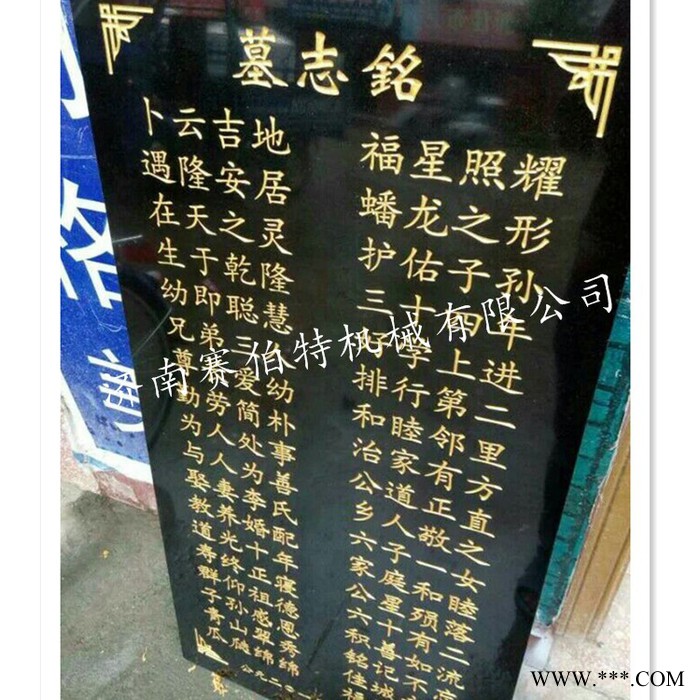 墓志銘
卜云吉地 福星照耀
遇隆安居 蟠龙之形
在天之灵 护佑子孙
生于乾隆 三十四年
幼即聪慧 好学上进
兄弟三人 排行第二
尊老爱幼 和睦邻里
勤劳简朴 治家有方
为人处事 公道正直
与人为善 乡人敬之
娶妻李氏 六子一女
教养婚配 家庭和睦
道光十年 公星殒落
寿终正寝 六十有二
群仰祖德 积善如流
子孙感恩 铭记不
青山翠秀 佳城
瓜瓞绵绵 福
公元二
济南赛伯特机械有限公司
WWW.***.COM